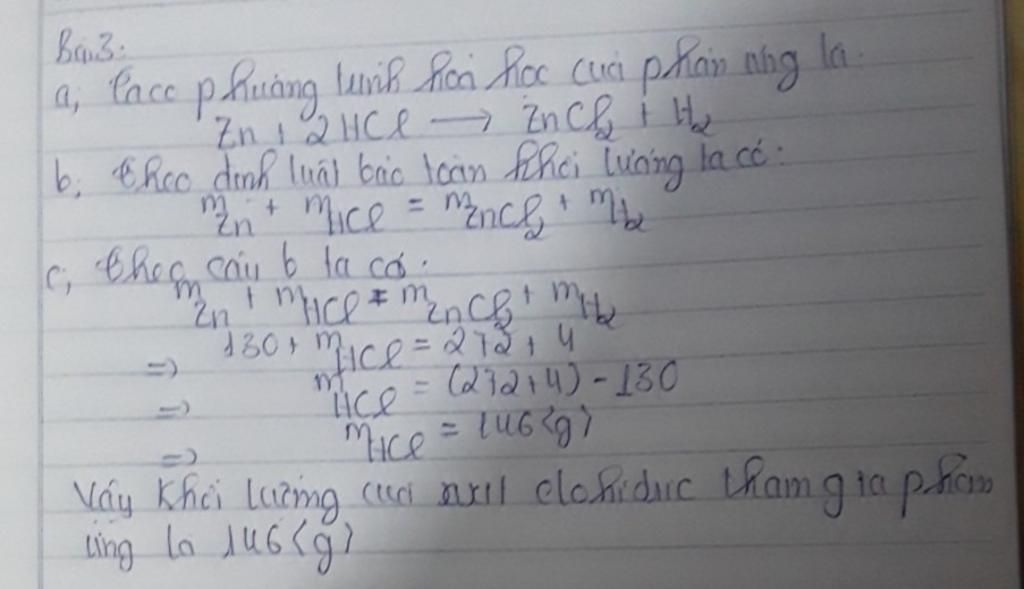 Bài 3:
a, Ta có phương trình hóa học của phản ứng là:
Zn + 2HCl → ZnCl₂ + H₂
b, theo định luật bảo toàn khối lượng ta có:
mZn + mHCl = mZnCl₂ + mH₂
c, theo câu b ta có:
mZn + mHCl = mZnCl₂ + mH₂
=> 130 + mHCl = 272 + 4
=> mHCl = (272 + 4) - 130
=> mHCl = 146 (g)
Vậy khối lượng của axit clohiđric tham gia phản
ứng là 146 (g)